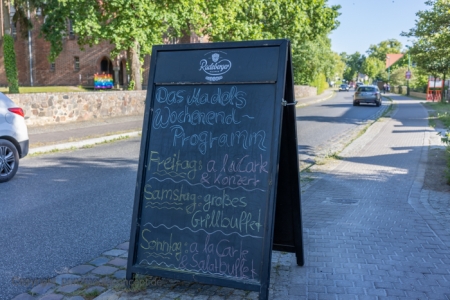 Radeberger
Das Madels
Wochenend-
Programm
Freitag: a la Carte
& Konzert
Samstag: großes
Grillbuffet
Sonntag: a la Carte
& Salatbuffet